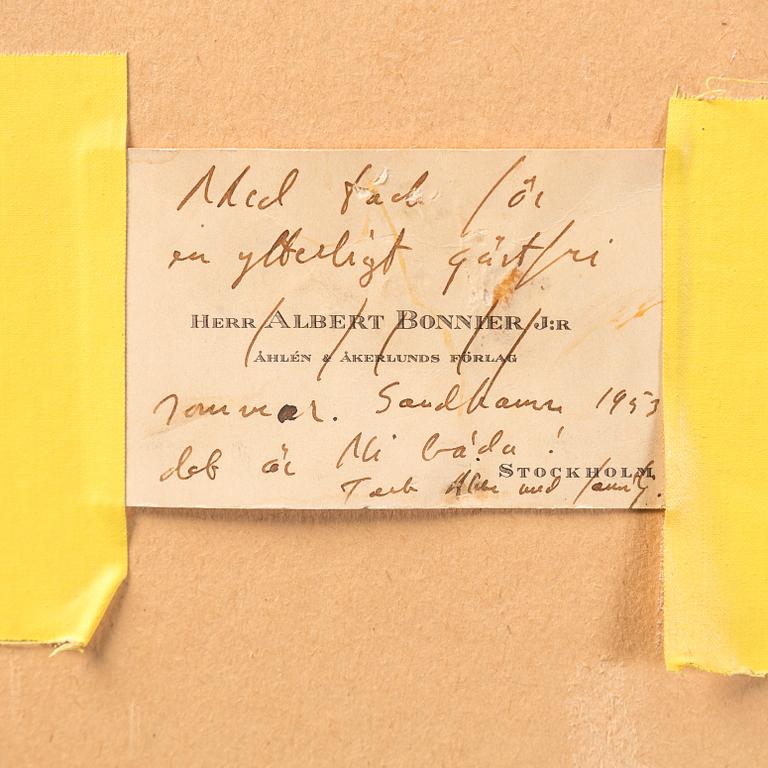 Med tack för
en ytterligt gästfri
HERR ALBERT BONNIER J:R
ÅHLÉN & ÅKERLUNDS FÖRLAG
sommar. Sandhamn 1953
det är Ni båda!
STOCKHOLM
Tack med family.